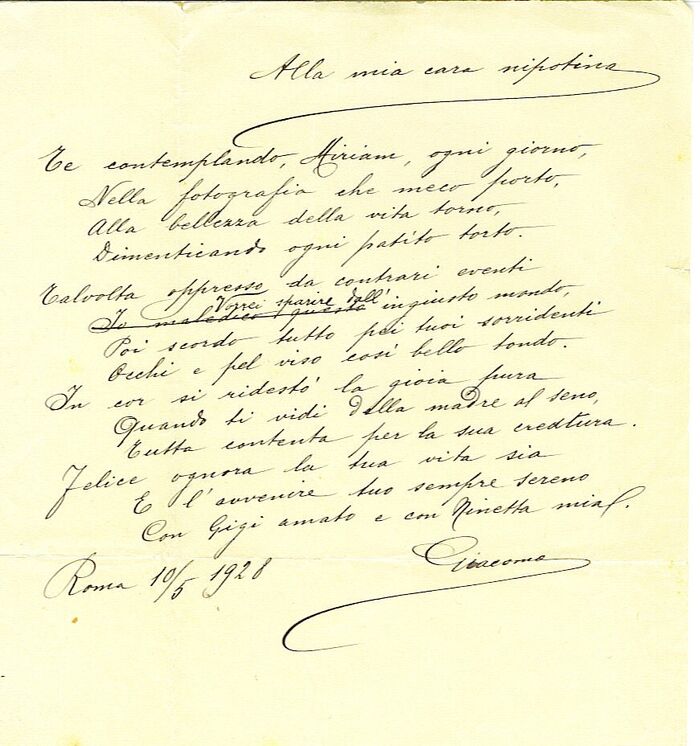 Alla mia cara nipotina
Te contemplando, Miriam, ogni giorno,
Nella fotografia che meco porto,
Alla bellezza della vita torno,
Dimenticando ogni patito torto.
Talvolta oppresso da contrari eventi
Vorrei sparire dall'
Io maledico questo ingiusto mondo,
Poi scordo tutto pei tuoi sorridenti
Occhi e pel viso così bello tondo.
In cor si ridestó la gioia pura
Quando ti vidi della madre al seno,
Tutta contenta per la sua creatura.
Felice ognora la tua vita sia
E l'avvenire tuo sempre sereno
Con Gigi amato e con Ninetta mia.
Giacomo
Roma 10/5 1928